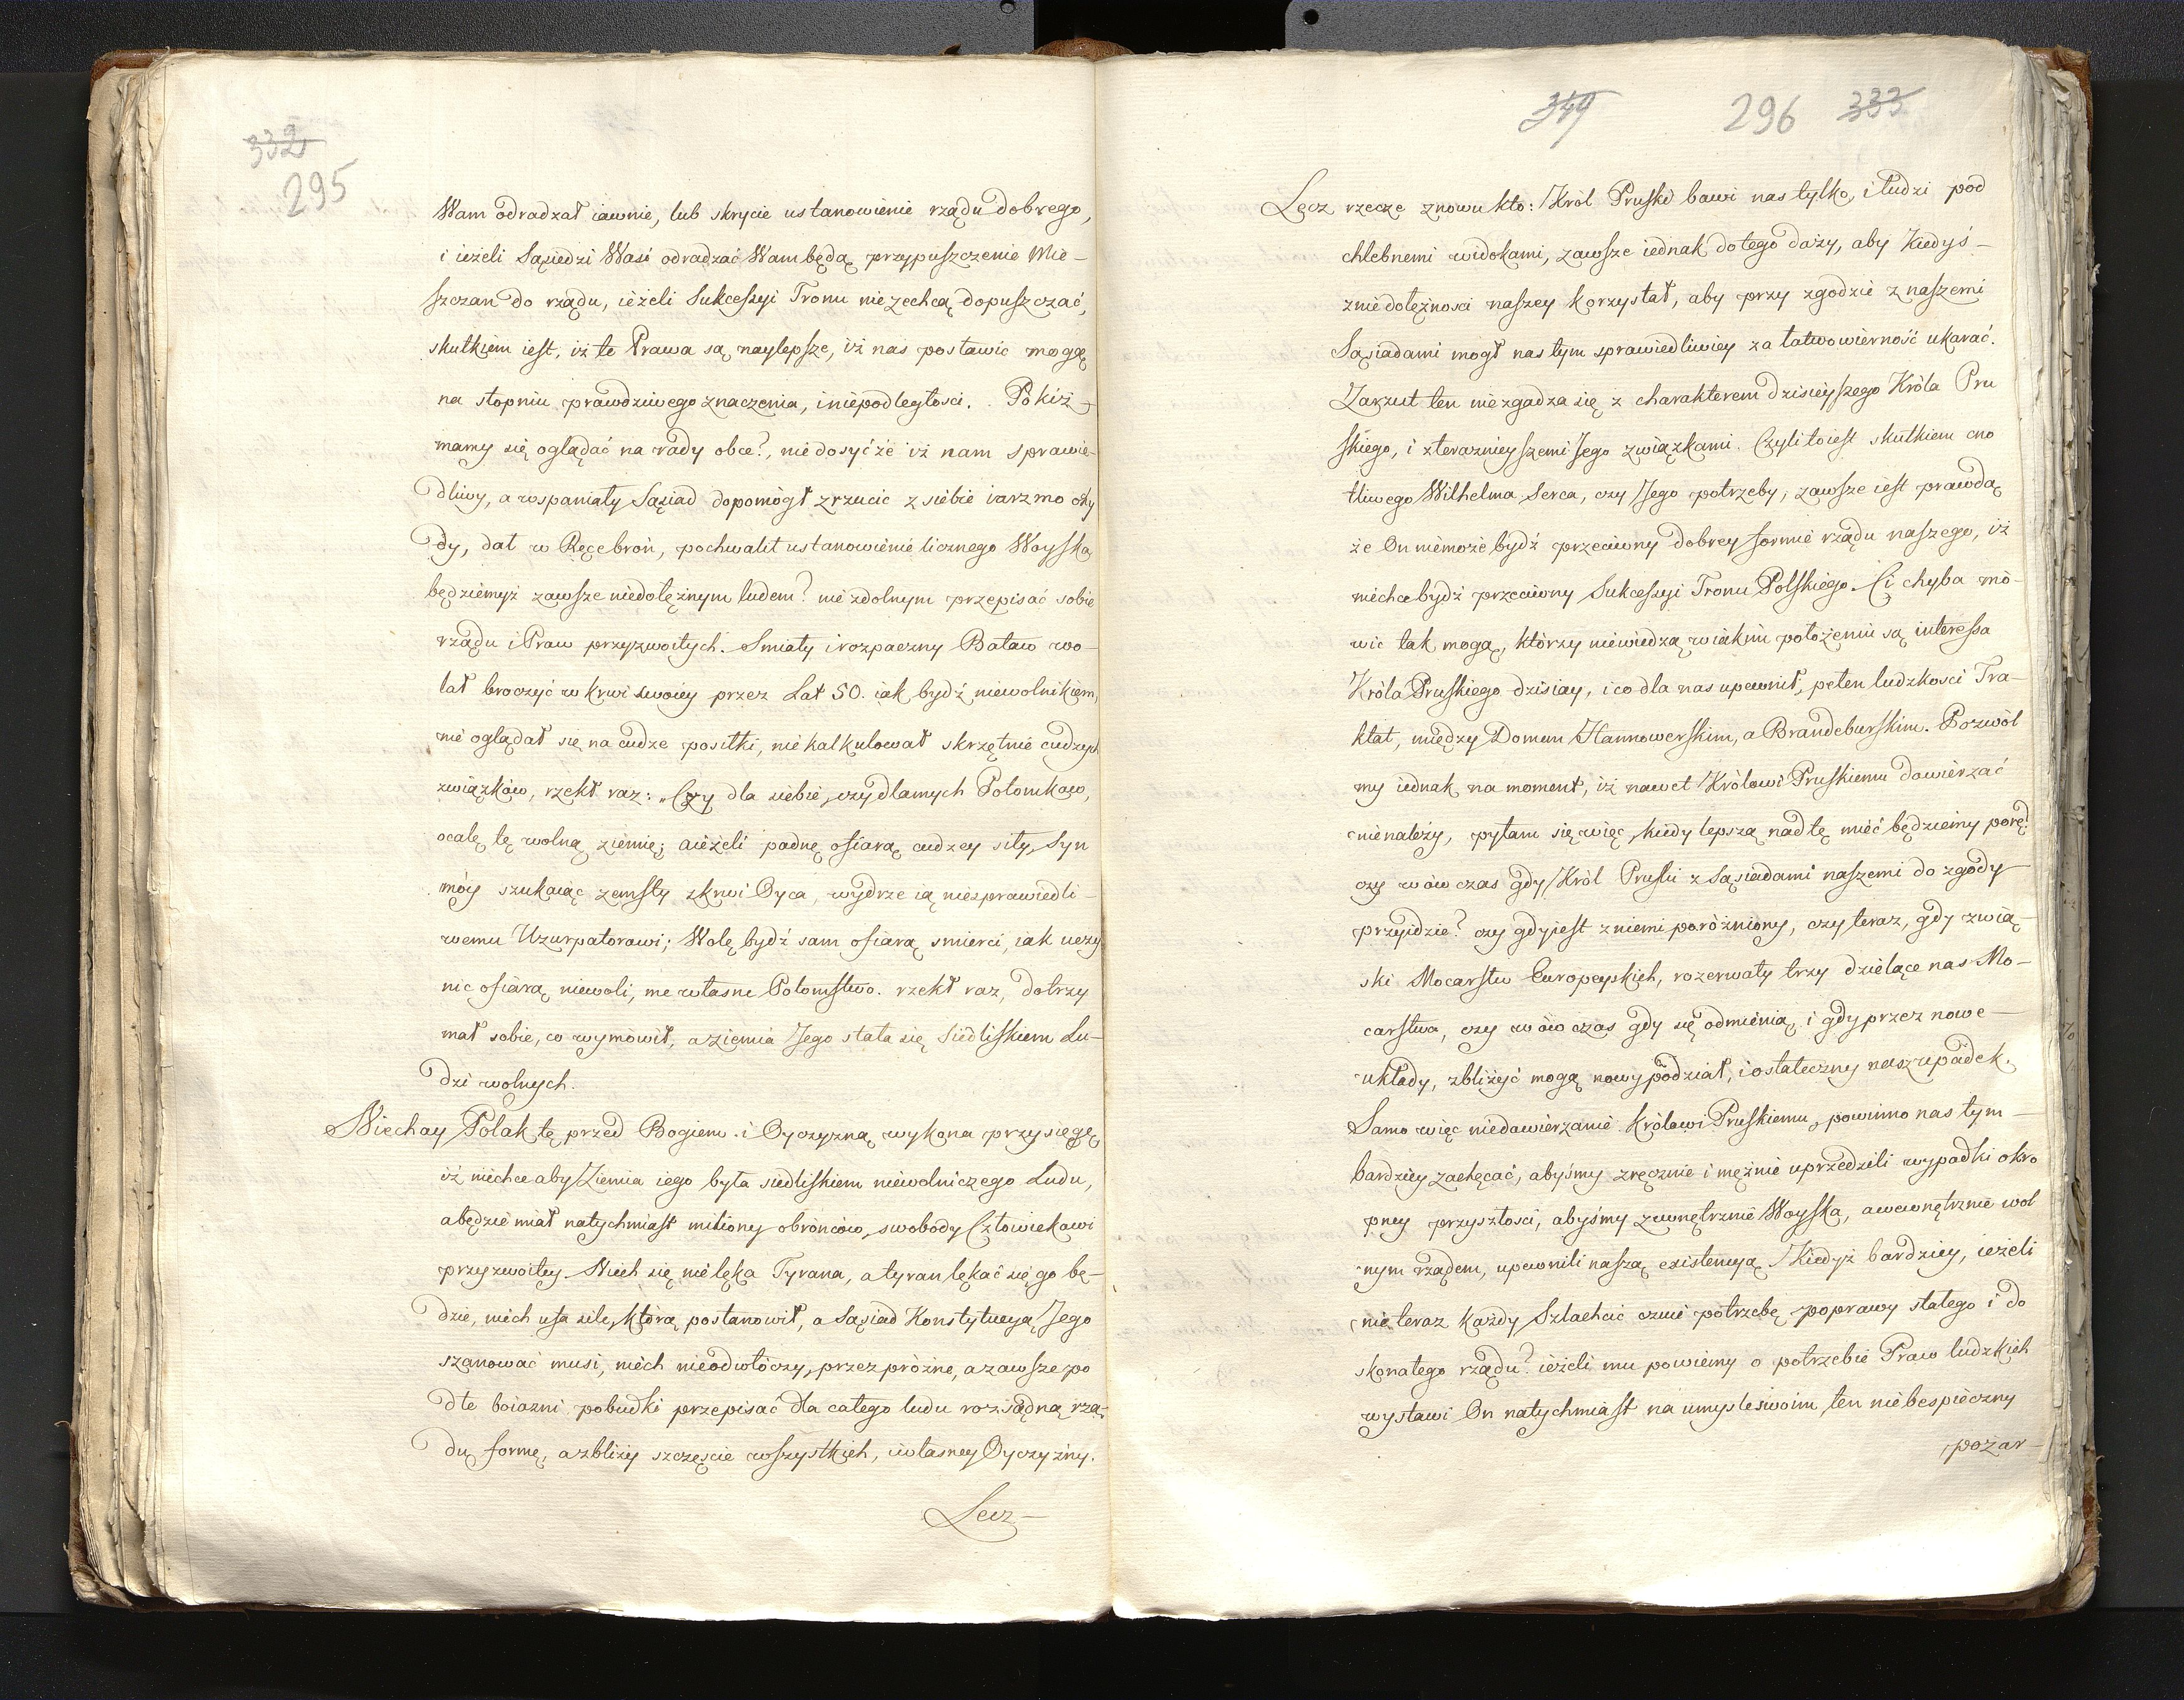 332
295
Wam odradzał iawnie, lub skrycie ustanowienie rządu dobrego,
i ieżeli Sąsiedzi Wasi odradzać Wam będą przypuszczenie Mie-
szczan do rządu, ieżeli Sukcessyi Tronu nie zechcą dopuszczać,
skutkiem iest, iż te Prawa są naylepsze, iż nas postawić mogą
na stopniu prawdziwego znaczenia, i niepodległosci. Pokiż
mamy się oglądać na rady obce?, nie dosyć że iż nam sprawie-
dliwy, a wspaniały Sąsiad dopomógł zrzucić z siebie iarzmo ohy
dy, dał w Ręce broń, pochwalił ustanowienie licznego Woyska
będziemyż zawsze niedołężnym ludem? nie zdolnym przepisać sobie
rządu i Praw przyzwoitych. Smiały i rozpaczny Bataw wo-
lał broczyć w krwi swoiey przez Lat 50. iak bydź niewolnikiem,
nie oglądał się na cudze posiłki, nie kalkulował skrzętnie cudzych
związków, rzekł raz: „Czy dla siebie, czy dla mych Potomkow,
ocalę tę wolną ziemię; a ieżeli padnę ofiarą cudzey siły, Syn
móy szukaiąc zemsty z krwi Oyca, wydrze ią niesprawiedli-
wemu Uzurpatorowi; Wolę bydź sam ofiarą smierci, iak uczy
nic ofiarą niewoli, me własne Potomstwo. rzekł raz, dotrzy
mał sobie, co wymówił, a ziemia Jego stała się Siedliskiem Lu-
dzi wolnych.
Niechay Polak tę przed Bogiem i Oyczyzną wykona przysięgę
iż niechce aby Ziemia iego była siedliskiem niewolniczego Ludu,
a będzie miał natychmiast miliony obrońców, swobody Człowiekowi
przyzwoitey. Niech się nie lęka Tyrana, a tyran lękać się go bę-
dzie, niech ufa sile, którą postanowił, a Sąsiad Konstytucyą Jego
szanować musi, niech nieodwłóczy, przez próżne, a zawsze po
dłe boiazni pobudki przepisać dla całego ludu rozsądną rzą-
du formę, a zbliży szczęście wszystkich, i własney Oyczyzny.
Lecz-
349 296 333
Lecz rzecze znowu kto: Król Pruski bawi nas tylko, i łudzi pod
chlebnemi widokami, zawsze iednak do tego dąży, aby kiedyś-
z niedołężności naszey korzystał, aby przy zgodzie z naszemi
Sąsiadami mogł nas tym sprawiedliwiey za łatwowierność ukarać.
Zarzut ten niezgadza się z charakterem dzisieyszego Króla Pru
skiego, i z terazniéyszemi Jego związkami. Czyli to iest skutkiem cno
tliwego Wilhelma Serca, czy Jego potrzeby, zawsze iest prawdą
że On niemoże bydź przeciwny dobrey formie rządu naszego, iż
niechce bydź przeciwny Sukcessyi Tronu Polskiego. Ci chyba mó-
wić tak mogą, którzy niewiedzą w iakim położeniu są interessa
Króla Pruskiego dzisiay, i co dla nas upewnił, pełen ludzkosci Tra-
ktat, między Domem Hannowerskim, a Brandeburskim. Pozwól
my iednak na moment, iż nawet Królowi Pruskiemu dowierzać
nienależy, pytam się więc, kiedy lepszą nad tę mieć będziemy porę?
czy wówczas gdy Król Pruski z Sąsiadami naszemi do zgody
przyidzie? czy gdy iest z niemi poróżniony, czy teraz, gdy zwią-
ski Mocarstw Europeyskich, rozerwały trzy dzielące nas Mo-
carstwa, czy wówczas gdy się odmienią, i gdy przez nowe-
układy, zbliżyć mogą nowy podział, i ostateczny nasz upadek.
Samo więc niedowierzanie Królowi Pruskiemu, powinno nas tym-
bardziey zachęcać, abyśmy zręcznie i mężnie uprzedzili wypadki okro
pney przyszłosci, abyśmy zewnętrznie Woyska, a wewnętrznie wol
nym rządem, upewnili naszą existencyą. Kiedyż bardziey, ieżeli
nie teraz każdy Szlachcic czuie potrzebę poprawy stałego i do
skonałego rządu? ieżeli mu powiemy o potrzebie Praw ludzkich
wystawi On natychmiast na umysle swoim ten niebespieczny
pożar-